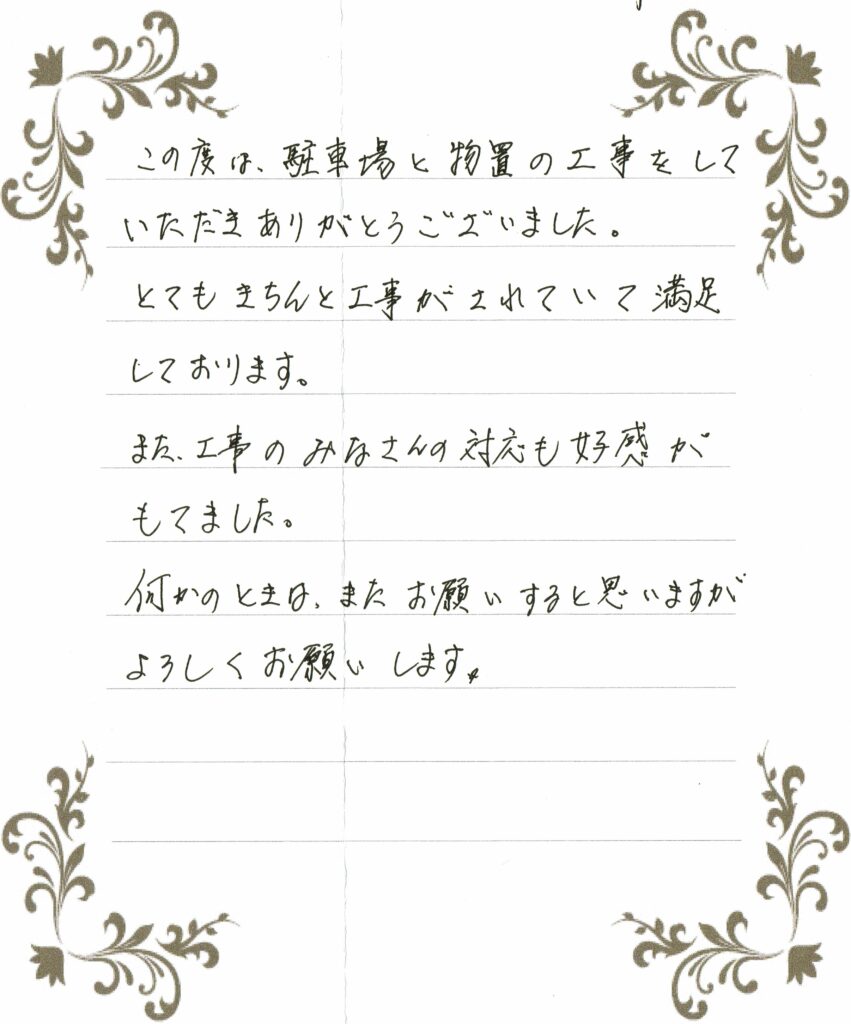 この度は、駐車場と物置の工事をして
いただきありがとうございました。
とてもきちんと工事がされていて満足
しております。
また、工事のみなさんの対応も好感が
もてました。
何かのときは、またお願いすると思いますが
よろしくお願いします。